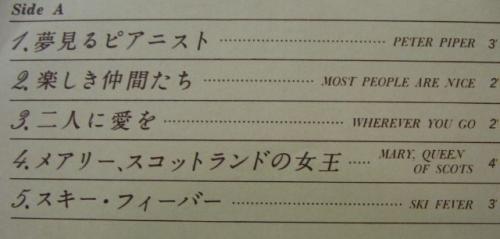 Side A
1. 夢見るピアニスト PETER PIPER 3'
2. 楽しき仲間たち MOST PEOPLE ARE NICE 2'
3. 二人に愛を WHEREVER YOU GO 2'
4. メアリー、スコットランドの女王 MARY, QUEEN OF SCOTS 4'
5. スキー・フィーバー SKI FEVER 3'